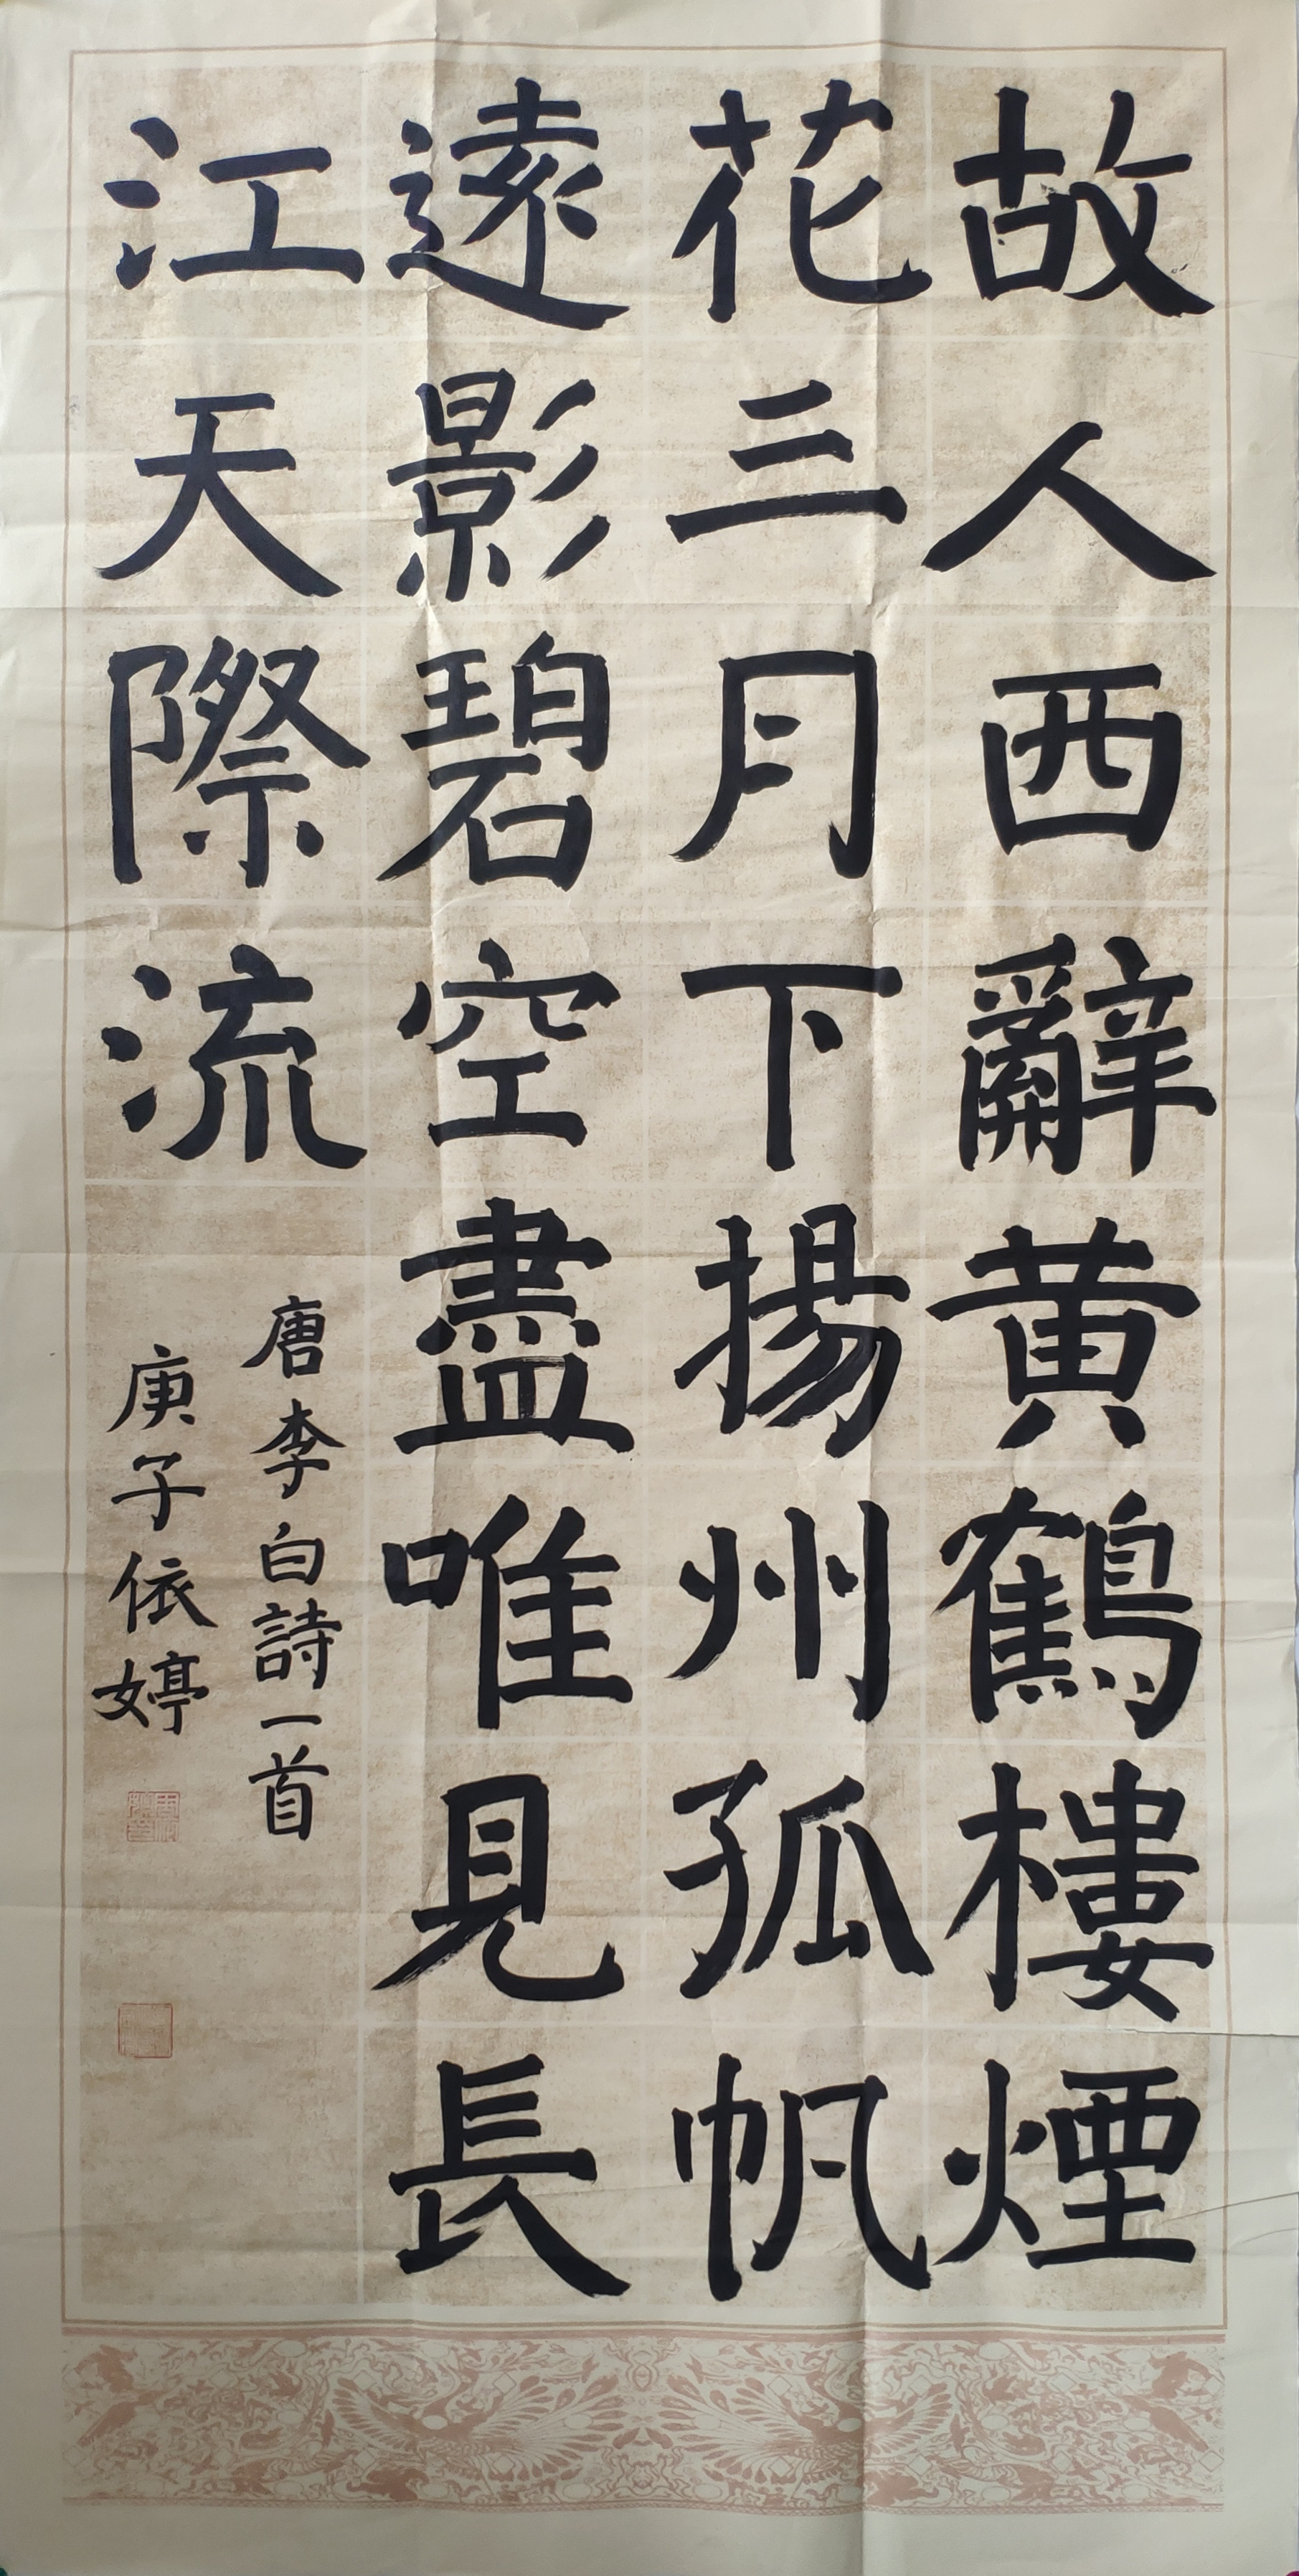 故人西辭黄鶴樓煙
花三月下揚州孤帆
遠影碧空盡唯見長
江天際流
唐李白詩一首
庚子依婷